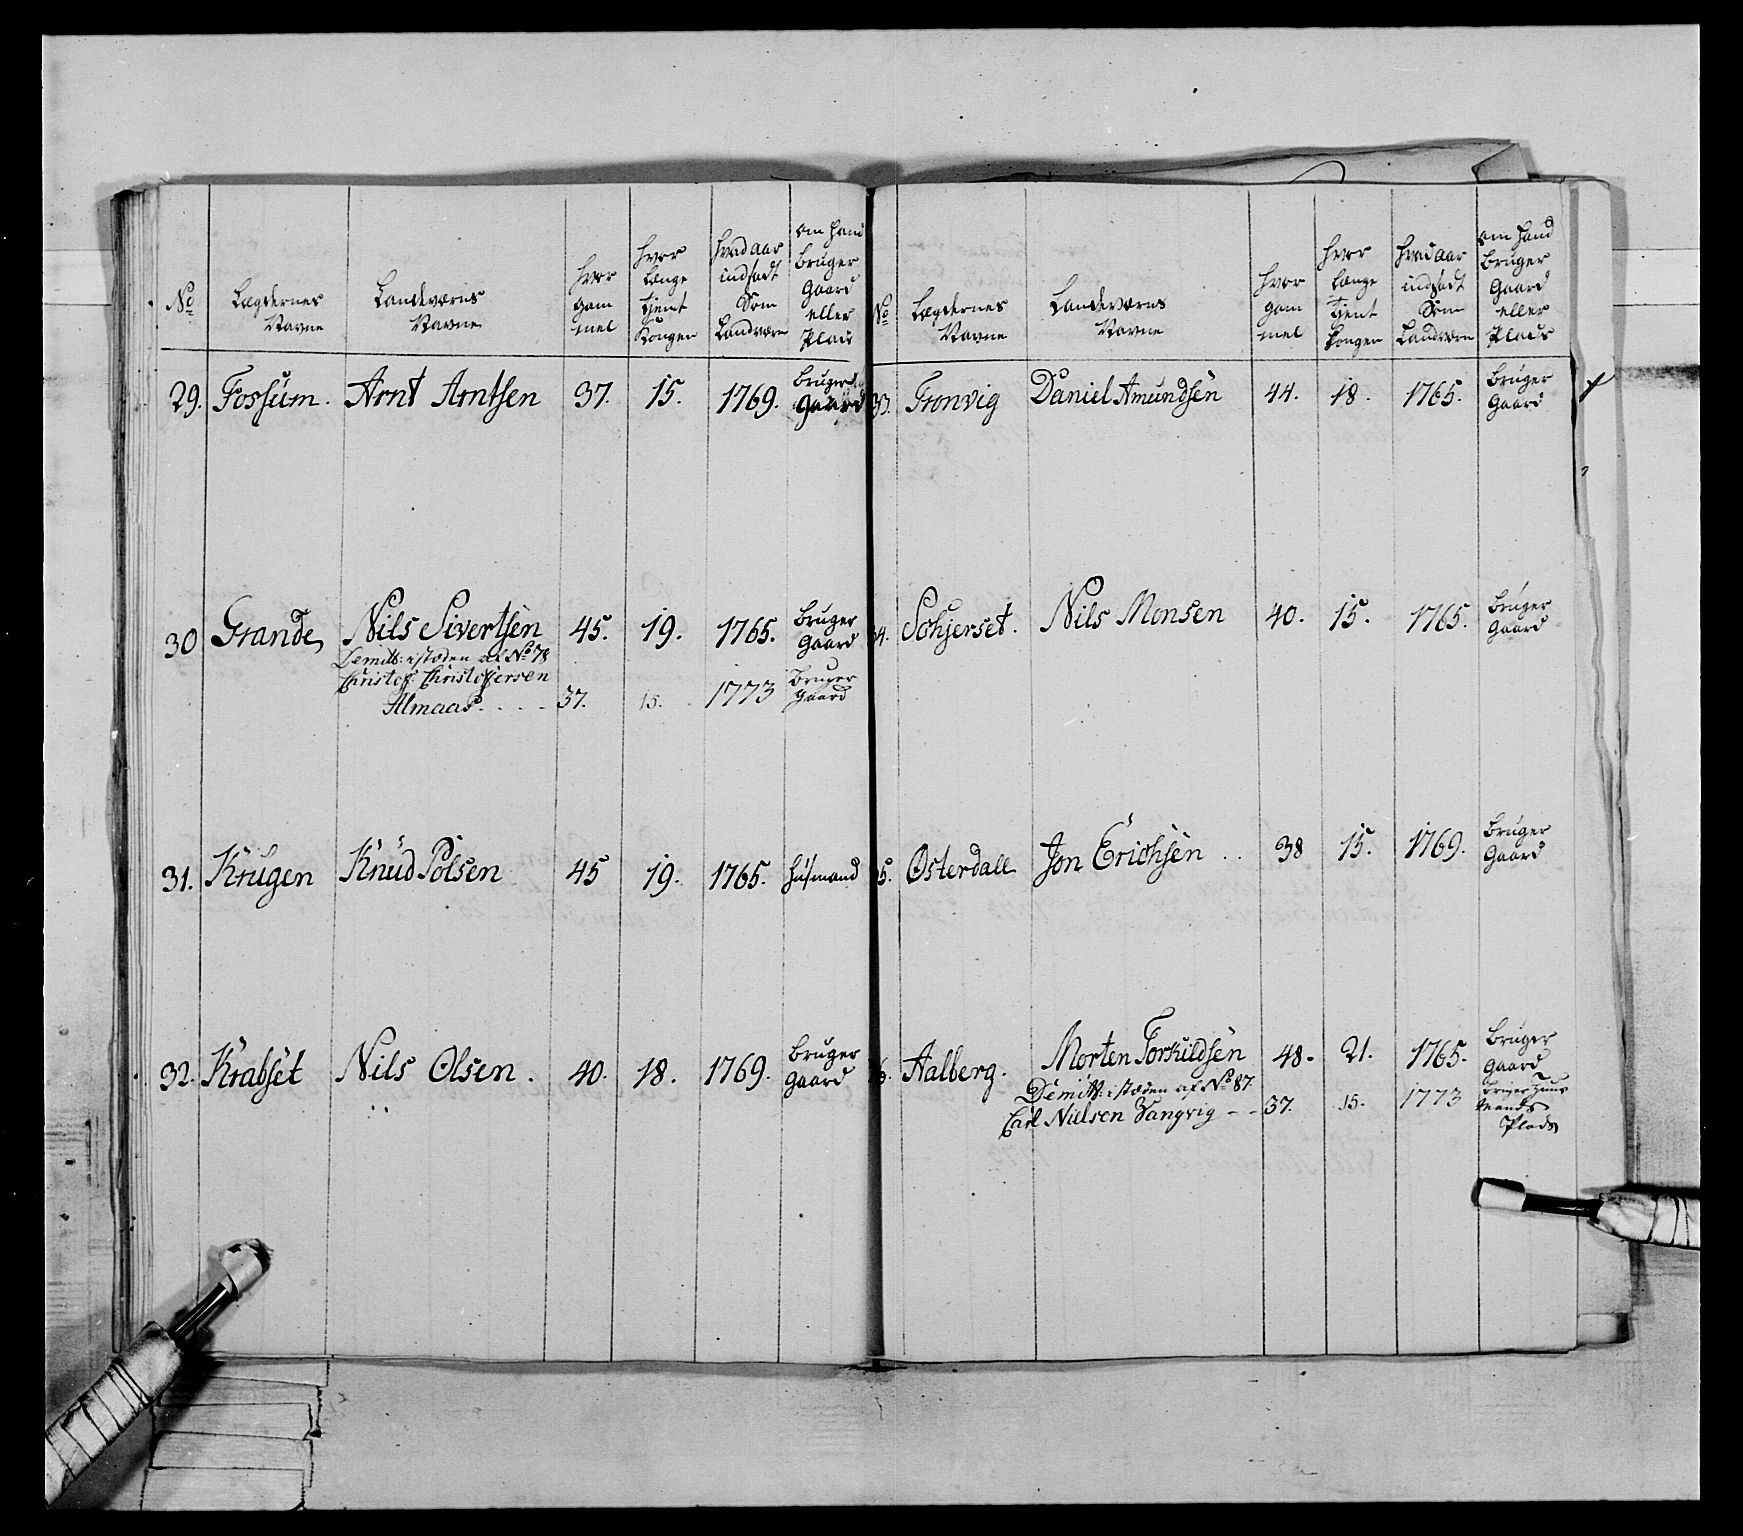 No
Lægdernes
Navne
Landeværns
Navne
hvor
gam
mel
hvor
længe
tjent
Kongen
hvad aar
indsadt
Som
Landværn
om hand
bruger
Gaard
eller
Plads
29. Fossum. Arnt Arntsen 37. 15. 1769. bruger
Gaard
30 Grande, Nils Sivertsen 45. 19. 1765. bruger
Gaard
Demitt: istæden af No 78
Christof: Christoffersen
Almaas . . . . 37. 15. 1773 bruger
gaard
31. Krugen Knud Polsen 45 19. 1765. husmand
32. Krabset Nils Olsen. 40. 18. 1769. bruger
gaard
No
Lægdernes
Navne
Landeværns
Navne
hvor
gam
mel
hvor
længe
tjent
Kongen
hvad aar
indsadt
Som
Landværn
om hand
bruger
Gaard
eller
Plads
33. Tronvig Daniel Amundsen 44. 18. 1765. bruger
Gaard
34. Schjerset. Nils Monsen 40. 15. 1765. bruger
Gaard
35. Østerdall Jon Erichsen . . 38 15. 1769. bruger
Gaard
36. Aalberg. Morten Torkildsen 48. 21. 1765. bruger
gaard
Demitt: istæden af No 87.
Carl Nielsen Vangvig - - 37. 15. 1773 bruger Huus
Mands
Plads